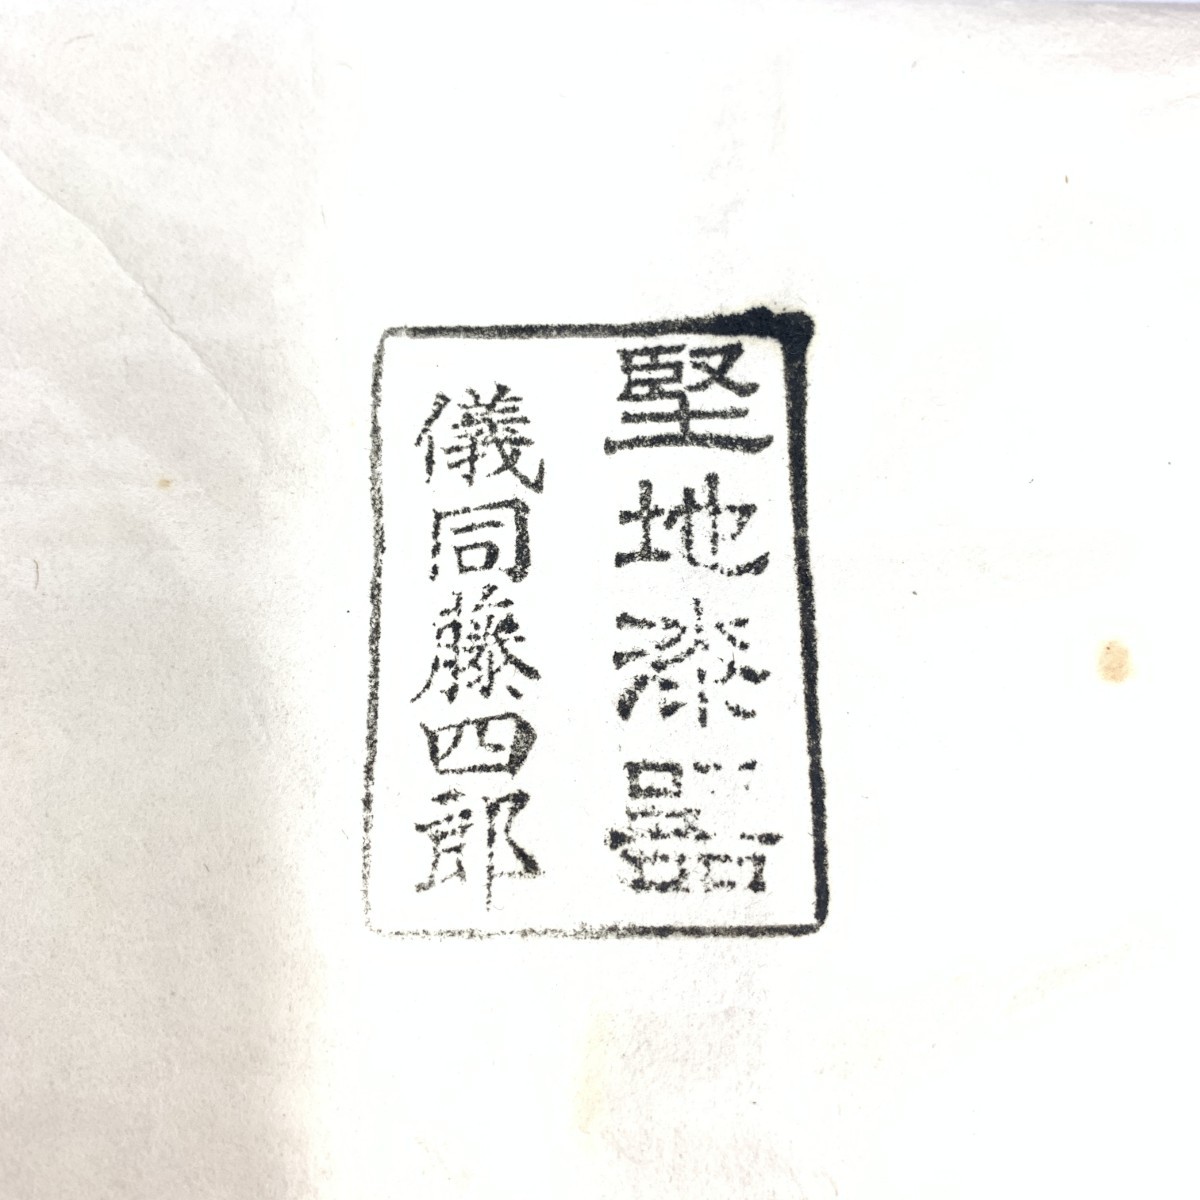 堅地漆器
儀同藤四郎